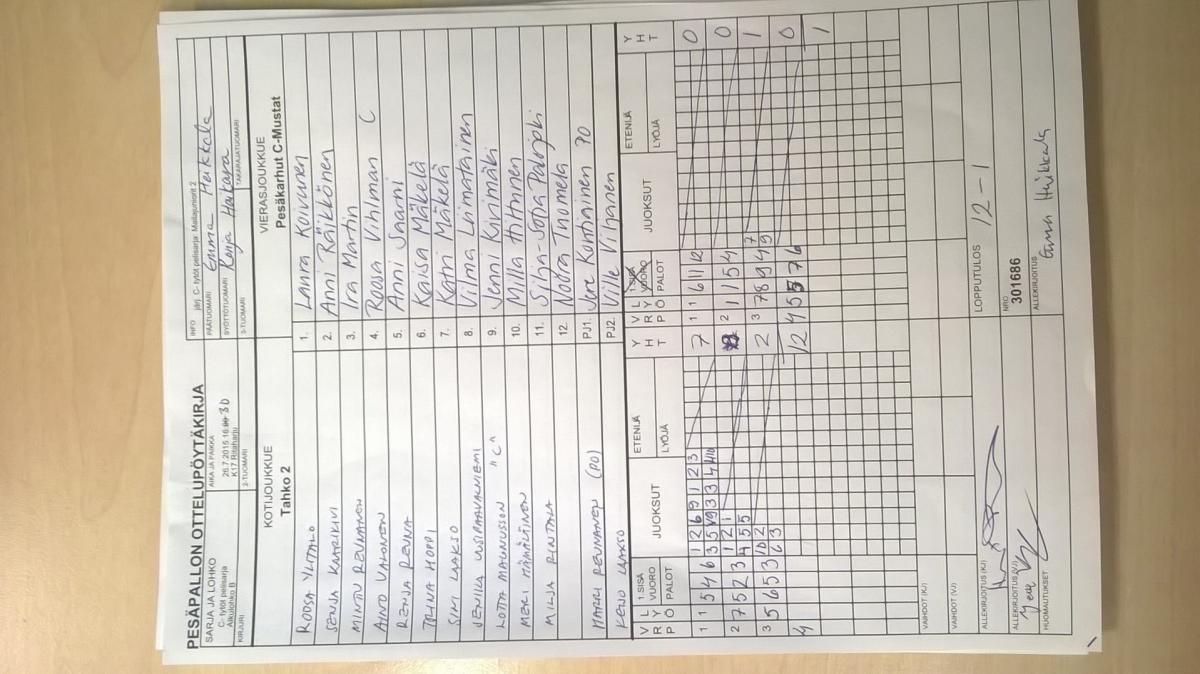 PESÄPALLON OTTELUPÖYTÄKIRJA
SARJA JA LOHKO
C- tytöt pelisarja
Alkulohko B
AIKA JA PAIKKA
26.7.2015 16:30
K17 Ritaharju
INFO järj. C- tytöt pelisarja: Mailajuniorit 2
PÄÄTUOMARI Emma Heikkala
SYÖTTÖTUOMARI Ronja Haltara
KIRJURI
2-TUOMARI
3-TUOMARI
TAKARAJATUOMARI
KOTIJOUKKUE
Tahko 2
VIERASJOUKKUE
Pesäkarhut C-Mustat
ROOSA YLITALO 1. Laura Koivunen
SENJA KARIKIVI 2. Anni Räikkönen
MINTTU REUNANEN 3. Ira Martin
AINO VALONEN 4. Roosa Vihlman C
RENJA REUNA 5. Anni Saarni
TALINA HOPPI 6. Kaisa Mäkelä
SINI LAAKSO 7. Katri Mäkelä
JENILLA UUSIPAAVALNIEMI 8. Vilma Liimatainen
LOTTA MAGNUSSON "C" 9. Jenni Kivimäki
MERI MÄÄLÄINEN 10. Milla Hiltunen
MILJA RINTALA 11. Silja-Sofia Palojoki
12. Noora Tuomela
HARRI REUNANEN (PO) PJ1. Jere Kontiainen PO
KEIJO LAAKSO PJ2. Ville Vihanen
VRP LYÖ 1.SISÄ VUORO PALOT JUOKSUT ETENIJÄ LYÖJÄ YHT
VRP LYÖ 1.SISÄ VUORO PALOT JUOKSUT ETENIJÄ LYÖJÄ YHT
1 1 5 4 6 1 2 6 9 1 2 3 7 1 6 11 12 0
3 5 9 3 3 4 10
2 7 5 2 3 1 2 1 2 1 1 5 4 0
4 5 5
3 5 6 5 3 2 2 3 7 8 9 4 7 1
6 3 9
4 12 4 5 5 7 6 0
1
VAIHDOT (KJ)
VAIHDOT (VJ)
LOPPUTULOS 12 - 1
ALLEKIRJOITUS (KJ)
NRO
301686
ALLEKIRJOITUS (VJ)
ALLEKIRJOITUS Emma Heikkala
HUOMAUTUKSET